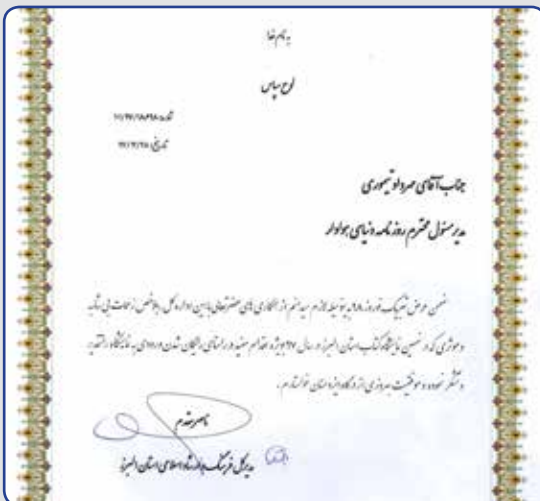 به نام خدا
لوح سپاس
تاریخ:
جناب آقای مهرداد تیموری
مدیر مسئول محترم روزنامه دنیای هوادار
ضمن عرض تبریک نوروز بدینوسیله لازم میدانم از همکاری های حضرتعالی با این اداره کل بالاخص زحمات بی شائبه
و موثری که در نمایشگاه کتاب استان البرز در سال ۹۷ بویژه اقدام مفید در راستای رایگان شدن ورودی به نمایشگاه تقدیر
و تشکر نموده و موفقیت و بهروزی از درگاه ایزد منان خواستارم.
ناصر مقدم
مدیرکل فرهنگ و ارشاد اسلامی استان البرز